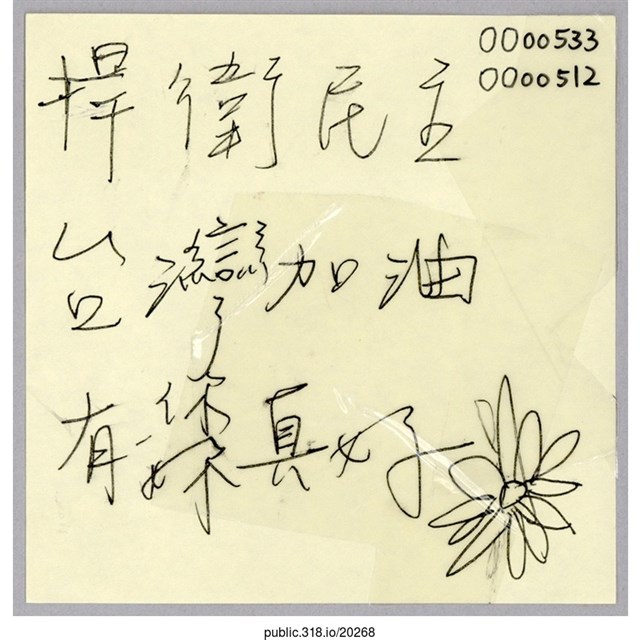 0000533
0000512
捍衛民主
台灣加油
有你妳真好
public.318.io/20268